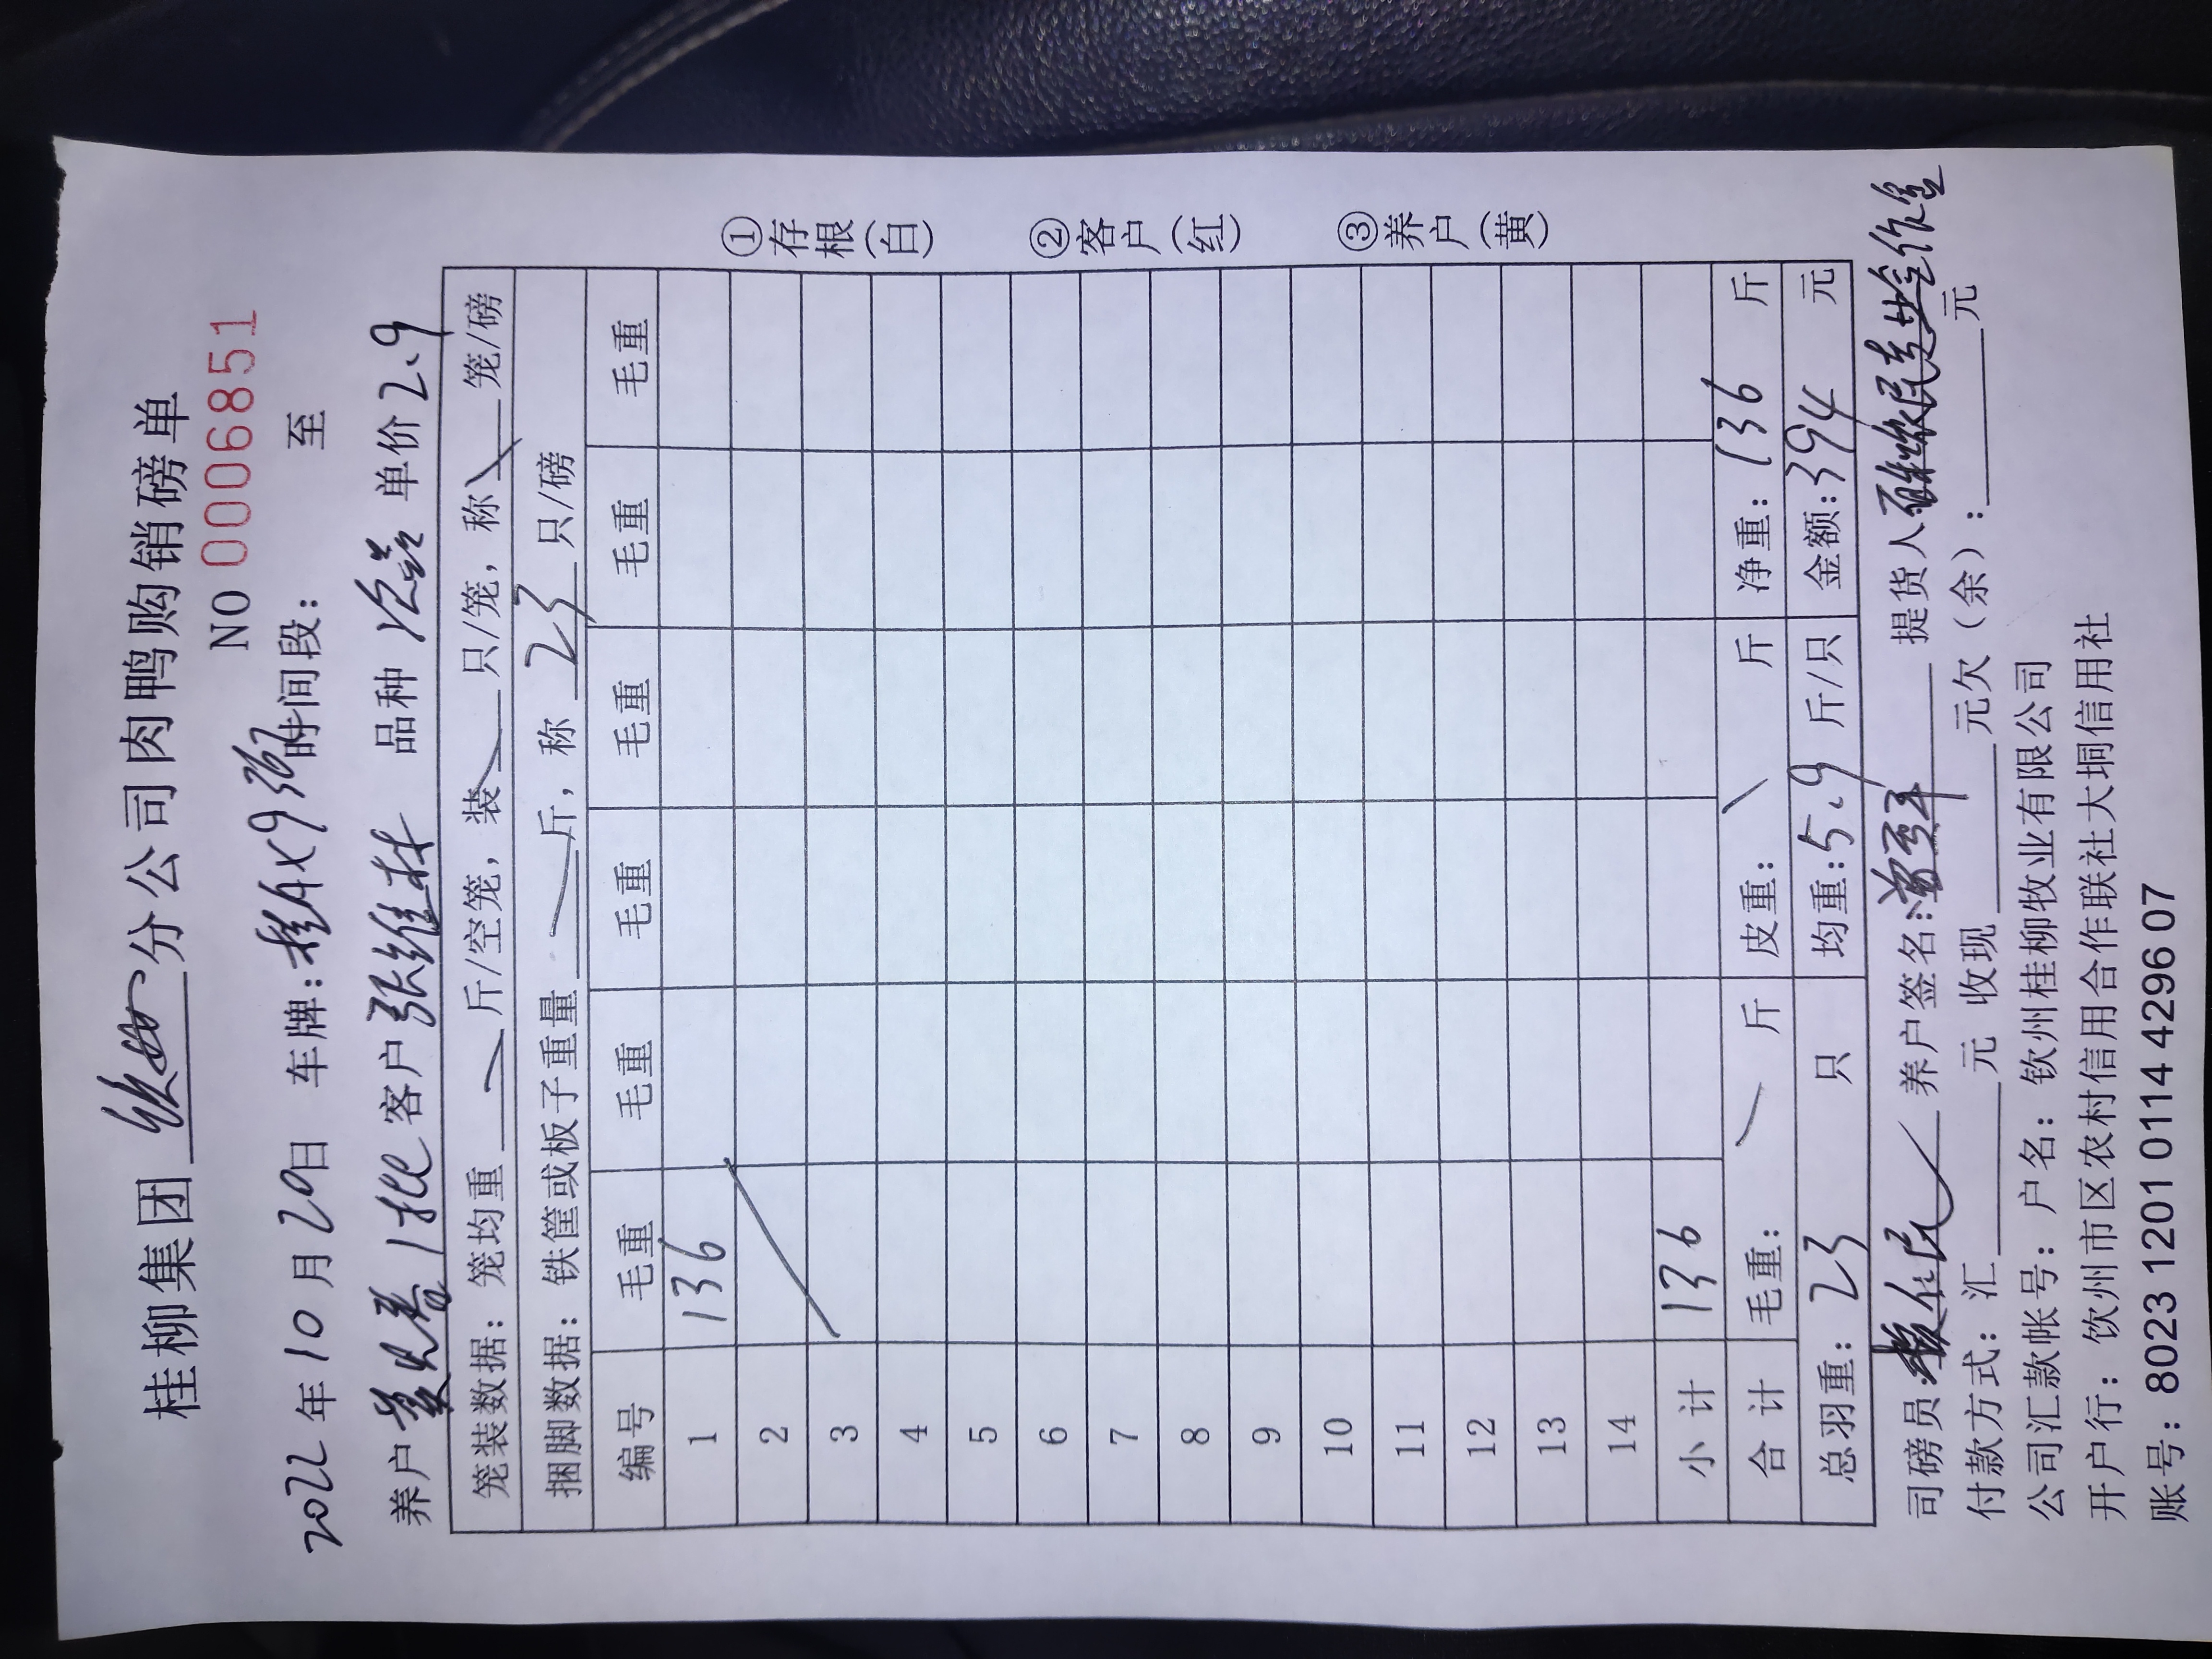 桂柳集团 分公司肉鸭购销磅单
NO 0006851
2022年10月29日 车牌:桂A 时间段: 至
养户 1批 客户张维林 品种 单价2.9
笼装数据:笼均重 斤/空笼,装 只/笼,称 笼/磅
捆脚数据:铁筐或板子重量 斤,称 23 只/磅
编号 毛重 毛重 毛重 毛重 毛重 毛重
1 136
2
3
4
5
6
7
8
9
10
11
12
13
14
小计 136
合计 毛重: 斤 皮重: 斤 净重:136 斤
总羽重:23 只 均重:5.9 斤/只 金额:394 元
①存根(白)
②客户(红)
③养户(黄)
司磅员: 养户签名: 提货人
付款方式:汇 元 收现 元欠(余): 元
公司汇款帐号:户名:钦州桂柳牧业有限公司
开户行:钦州市区农村信用合作联社大垌信用社
账号:8023 1201 0114 4296 07